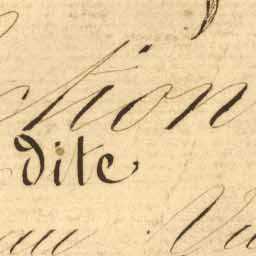 ction
dite
au